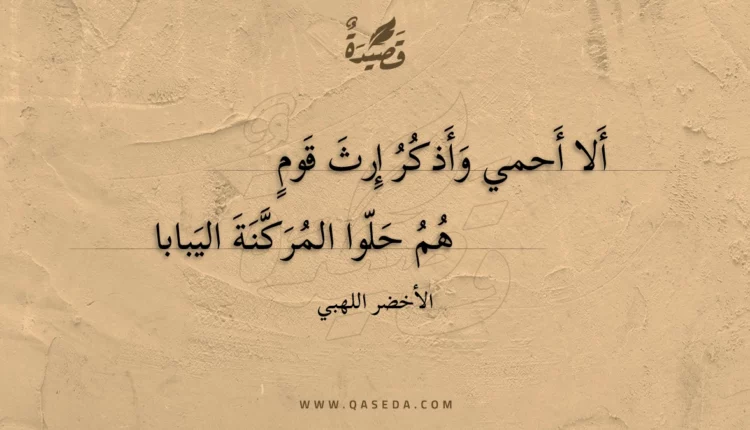 قَصِيْدَةٌ
أَلا أَحمي وَأَذكُرُ إِرثَ قَومٍ
هُمُ حَلّوا المُرَكَّنَةَ اليَبابا
الأخضر اللهبي
WWW.QASEDA.COM